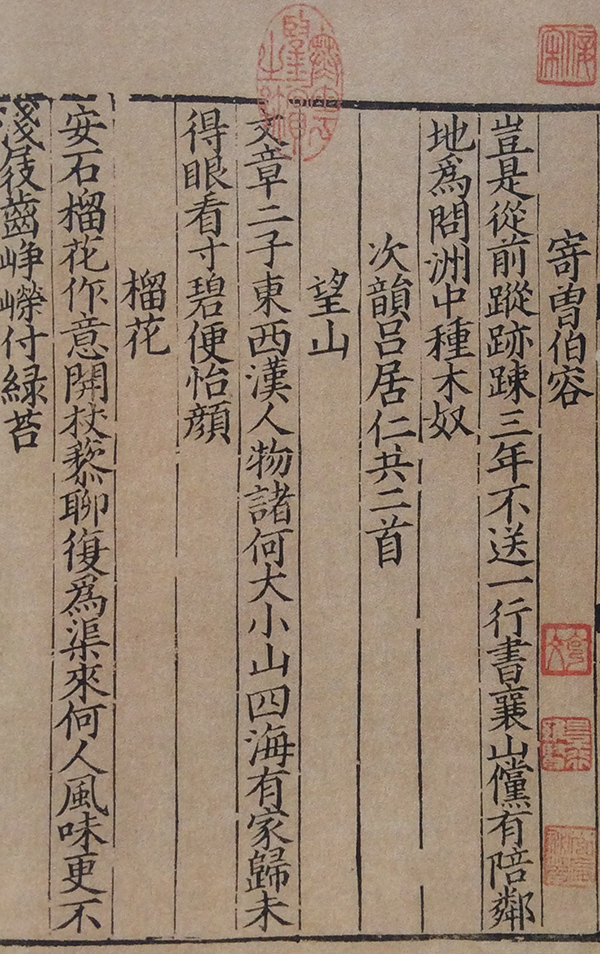 寄曽伯容
豈是從前蹤跡踈三年不送一行書襄山儻有陪鄰
地爲問洲中種木奴
次韻吕居仁共二首
望山
文章二子東西漢人物諸何大小山四海有家歸未
得眼看寸碧便怡顔
榴花
安石榴花作意開杖藜聊復爲渠來何人風味更不
淺屐齒崢嶸付緑苔